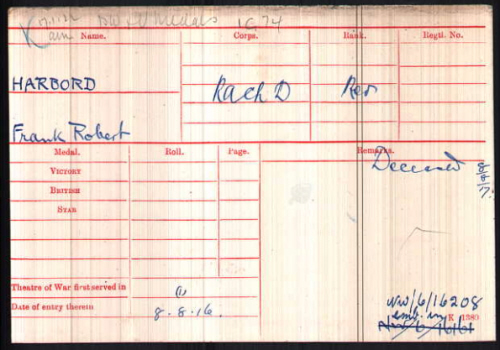 Name.
Corps.
Rank.
Regtl. No.
HARBORD
RAChD
Rev
Frank Robert
Medal.
Roll.
Page.
Remarks.
VICTORY
BRITISH
STAR
Deceased 8/8/17.
Theatre of War first served in
(1)
Date of entry therein
8.8.16.
NW/6/16208
K 1380